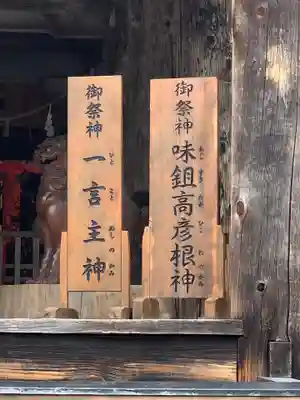 御祭神
味鉏高彦根神
あじ すき たか ひこ ね の かみ
御祭神
一言主神
ひと こと ぬし の かみ